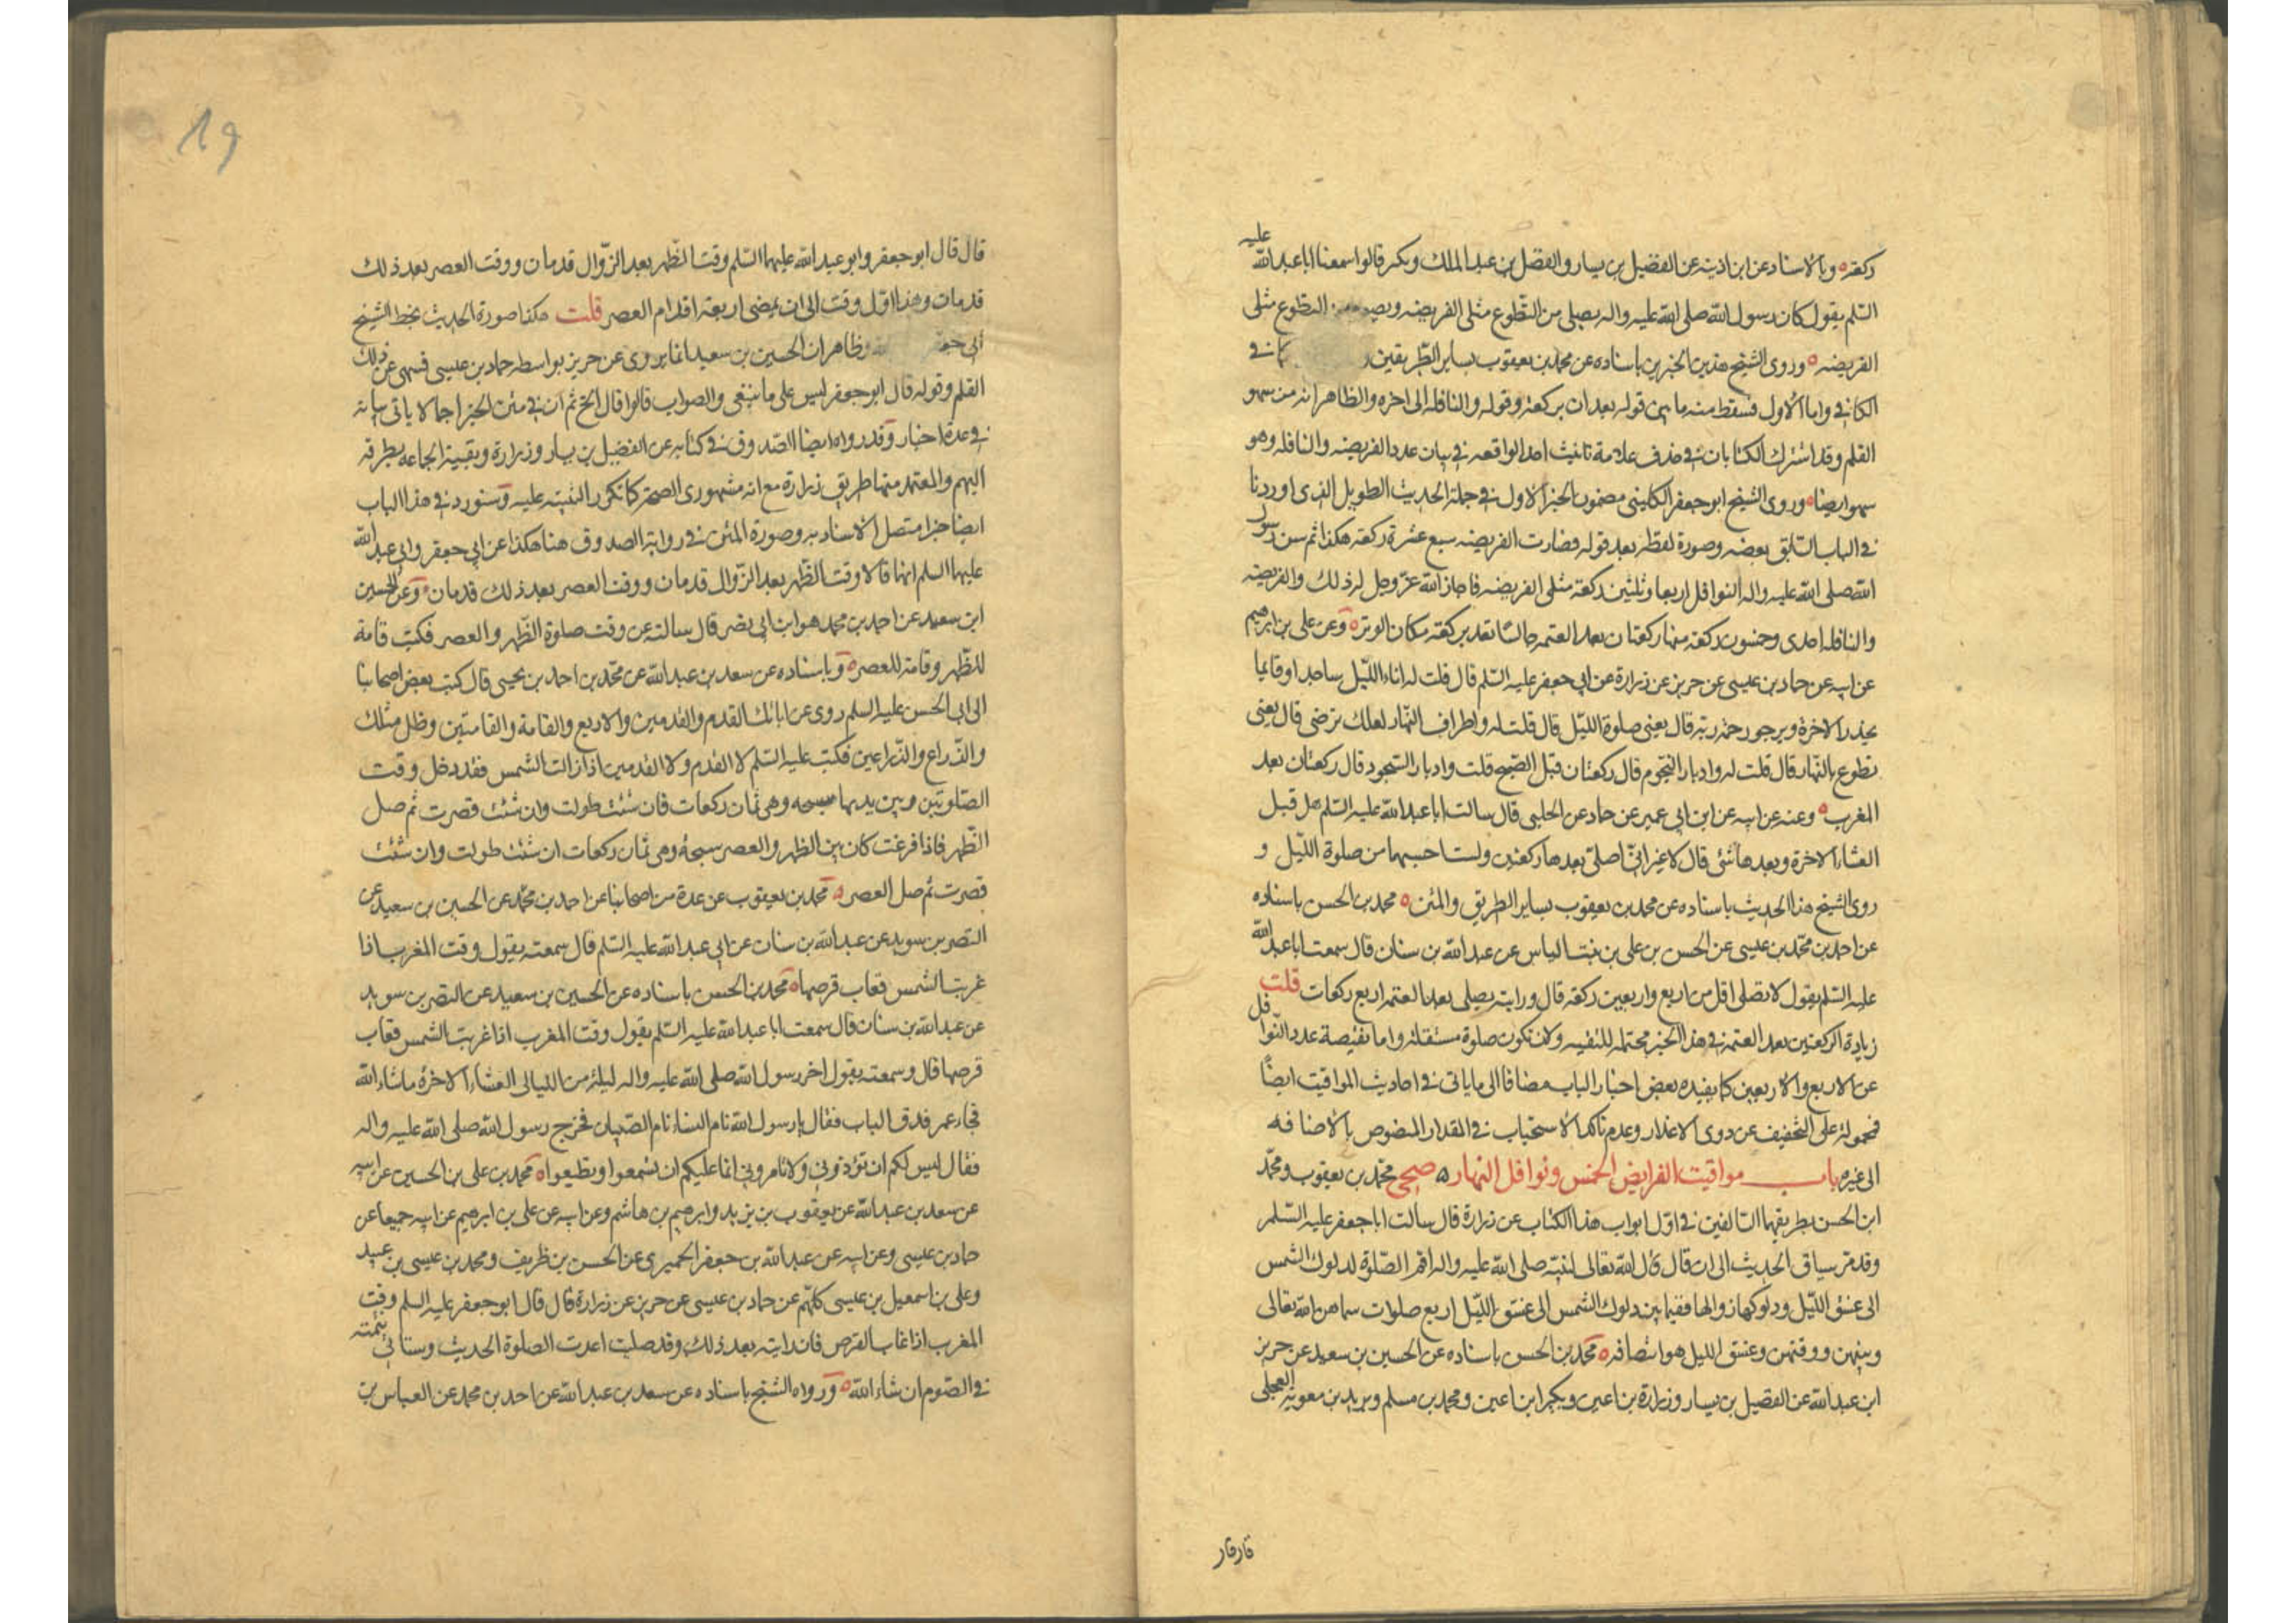 ركعة ٥ وبالاسناد عن ابن اذينه عن الفضيل بن يسار والفضل بن عبد الملك وبكير قالوا سمعنا ابا عبد الله عليه
السلم يقول كان رسول الله صلى الله عليه واله يصلى من التطوع مثلى الفريضه ويصوم من التطوع مثلى
الفريضه ٥ وروى الشيخ هذين الخبرين باسناده عن محمد بن يعقوب بساير الطريقين كما في
الكافي واما الاول فسقط منه ما بين قوله بعد ان بركعة وقوله والنافلة الى اخره والظاهر انه من سهو
القلم وقد اشترك الكتابان في حذف علامة تانيث احد الواقعه في بيان عدد الفريضه والنافله وهو
سهو ايضا ٥ وروى الشيخ ابو جعفر الكليني مضمون الخبر الاول في جملة الحديث الطويل الذى اوردنا
في الباب السابق بعضه وصورة لفظه بعد قوله فصارت الفريضه سبع عشرة ركعة هكذا ثم سن رسول
الله صلى الله عليه واله النوافل اربعا وثلثين ركعة مثلى الفريضه فاجاز الله عز وجل له ذلك والفريضه
والنافله احدى وخمسون ركعة منها ركعتان بعد العتمه جالسا تعد بركعة مكان الوتر ٥ وعن على بن ابرهيم
عن ابيه عن حماد بن عيسى عن حريز عن زرارة عن ابي جعفر عليه السلم قال قلت له اناء الليل ساجدا وقايما
يحذر الاخرة ويرجو رحمة ربه قال يعنى صلوة الليل قال قلت له واطراف النهار لعلك ترضى قال يعنى
تطوع بالنهار قال قلت له وادبار النجوم قال ركعتان قبل الصبح قلت وادبار السجود قال ركعتان بعد
المغرب ٥ وعنه عن ابيه عن ابن ابي عمير عن حماد عن الحلبى قال سالت ابا عبد الله عليه السلم هل قبل
العشاء الاخرة وبعدها شئ قال لا غير اني اصلى بعدها ركعتين ولست احسبهما من صلوة الليل و
روى الشيخ هذا الحديث باسناده عن محمد بن يعقوب بساير الطريق والمتن ٥ محمد بن الحسن باسناده
عن احمد بن محمد بن عيسى عن الحسن بن على بن بنت الياس عن عبد الله بن سنان قال سمعت ابا عبد الله
عليه السلم يقول لا تصلى اقل من اربع واربعين ركعة قال ورايته يصلى بعد العتمه اربع ركعات قلت
زيادة الركعتين بعد العتمه في هذا الخبر محتمله للتقيه ولان تكون صلوة مستقلة واما نقيصة عدد النوافل
عن الاربع والاربعين كما يفيده بعض اخبار الباب مضافا الى ما ياتى في احاديث المواقيت ايضا
فمحمولة على التخفيف عن ذوى الاعذار وعدم تاكد الاستحباب في القدر المنصوص بالاضافه
الى غيره باب مواقيت الفرايض الخمس ونوافل النهار ٥ صحى محمد بن يعقوب ومحمد
ابن الحسن بطريقهما السالفين في اول ابواب هذا الكتاب عن زرارة قال سالت ابا جعفر عليه السلم
وقد مر سياق الحديث الى ان قال قال الله تعالى لنبيه صلى الله عليه واله اقم الصلوة لدلوك الشمس
الى غسق الليل ودلوكها زوالها ففيما بين دلوك الشمس الى غسق الليل اربع صلوات سماهن الله تعالى
وبينهن ووقتهن وغسق الليل هو انتصافه ٥ محمد بن الحسن باسناده عن الحسين بن سعيد عن حريز
ابن عبد الله عن الفضيل بن يسار وزرارة بن اعين وبكير ابن اعين ومحمد بن مسلم وبريد بن معوية العجلى
19
قال قال ابو جعفر وابو عبد الله عليهما السلم وقت الظهر بعد الزوال قدمان ووقت العصر بعد ذلك
قدمان وهذا اول وقت الى ان يمضى اربعة اقدام العصر قلت هكذا صورة الحديث بخط الشيخ
ابي جعفر وظاهر ان الحسين بن سعيد انما يروى عن حريز بواسطه حماد بن عيسى فسهى عن ذلك
القلم وقوله قال ابو جعفر ليس على ما ينبغى والصواب قالوا قال الخ ثم ان في متن الخبر اجمالا ياتى بيانه
في عدة اخبار وقد رواه ايضا الصدوق في كتابه عن الفضيل بن يسار وزرارة وبقية الجماعه بطرقه
اليهم والمعتمد منها طريق زرارة مع انه مشهورى الصحة كما تكرر التنبيه عليه وسنورد في هذا الباب
ايضا خبرا متصل الاسناد به وصورة المتن في رواية الصدوق هنا هكذا عن ابي جعفر وابي عبد الله
عليهما السلم انهما قالا وقت الظهر بعد الزوال قدمان ووقت العصر بعد ذلك قدمان ٥ وعن الحسين
ابن سعيد عن احمد بن محمد هو ابن ابي نصر قال سالته عن وقت صلوة الظهر والعصر فكتب قامة
للظهر وقامة للعصر ٥ وباسناده عن سعد بن عبد الله عن محمد بن احمد بن يحيى قال كتب بعض اصحابنا
الى ابي الحسن عليه السلم روى عن ابائك القدم والقدمين والاربع والقامة والقامتين وظل مثلك
والذراع والذراعين فكتب عليه السلم لا القدم ولا القدمين اذا زالت الشمس فقد دخل وقت
الصلوتين وبين يديها سبحه وهى ثمان ركعات فان شئت طولت وان شئت قصرت ثم صل
الظهر فاذا فرغت كان بين الظهر والعصر سبحة وهى ثمان ركعات ان شئت طولت وان شئت
قصرت ثم صل العصر ٥ محمد بن يعقوب عن عدة من اصحابنا عن احمد بن محمد عن الحسين بن سعيد عن
النضر بن سويد عن عبد الله بن سنان عن ابي عبد الله عليه السلم قال سمعته يقول وقت المغرب اذا
غربت الشمس فغاب قرصها ٥ محمد بن الحسن باسناده عن الحسين بن سعيد عن النضر بن سويد
عن عبد الله بن سنان قال سمعت ابا عبد الله عليه السلم يقول وقت المغرب اذا غربت الشمس فغاب
قرصها قال وسمعته يقول اخر رسول الله صلى الله عليه واله ليلة من الليالى العشاء الاخرة ما شاء الله
فجاء عمر فدق الباب فقال يا رسول الله نام النساء نام الصبيان فخرج رسول الله صلى الله عليه واله
فقال ليس لكم ان تؤذونى ولا تامرونى انما عليكم ان تسمعوا وتطيعوا ٥ محمد بن على بن الحسين عن ابيه
عن سعد بن عبد الله عن يعقوب بن يزيد وابرهيم بن هاشم وعن ابيه عن على بن ابرهيم عن ابيه جميعا عن
حماد بن عيسى وعن ابيه عن عبد الله بن جعفر الحميرى عن الحسن بن ظريف ومحمد بن عيسى بن عبيد
وعلى بن اسمعيل بن عيسى كلهم عن حماد بن عيسى عن حريز عن زرارة قال قال ابو جعفر عليه السلم وقت
المغرب اذا غاب القرص فان رايته بعد ذلك وقد صليت اعدت الصلوة الحديث وستاتي تتمته
في الصوم ان شاء الله ٥ ورواه الشيخ باسناده عن سعد بن عبد الله عن احمد بن محمد عن العباس بن